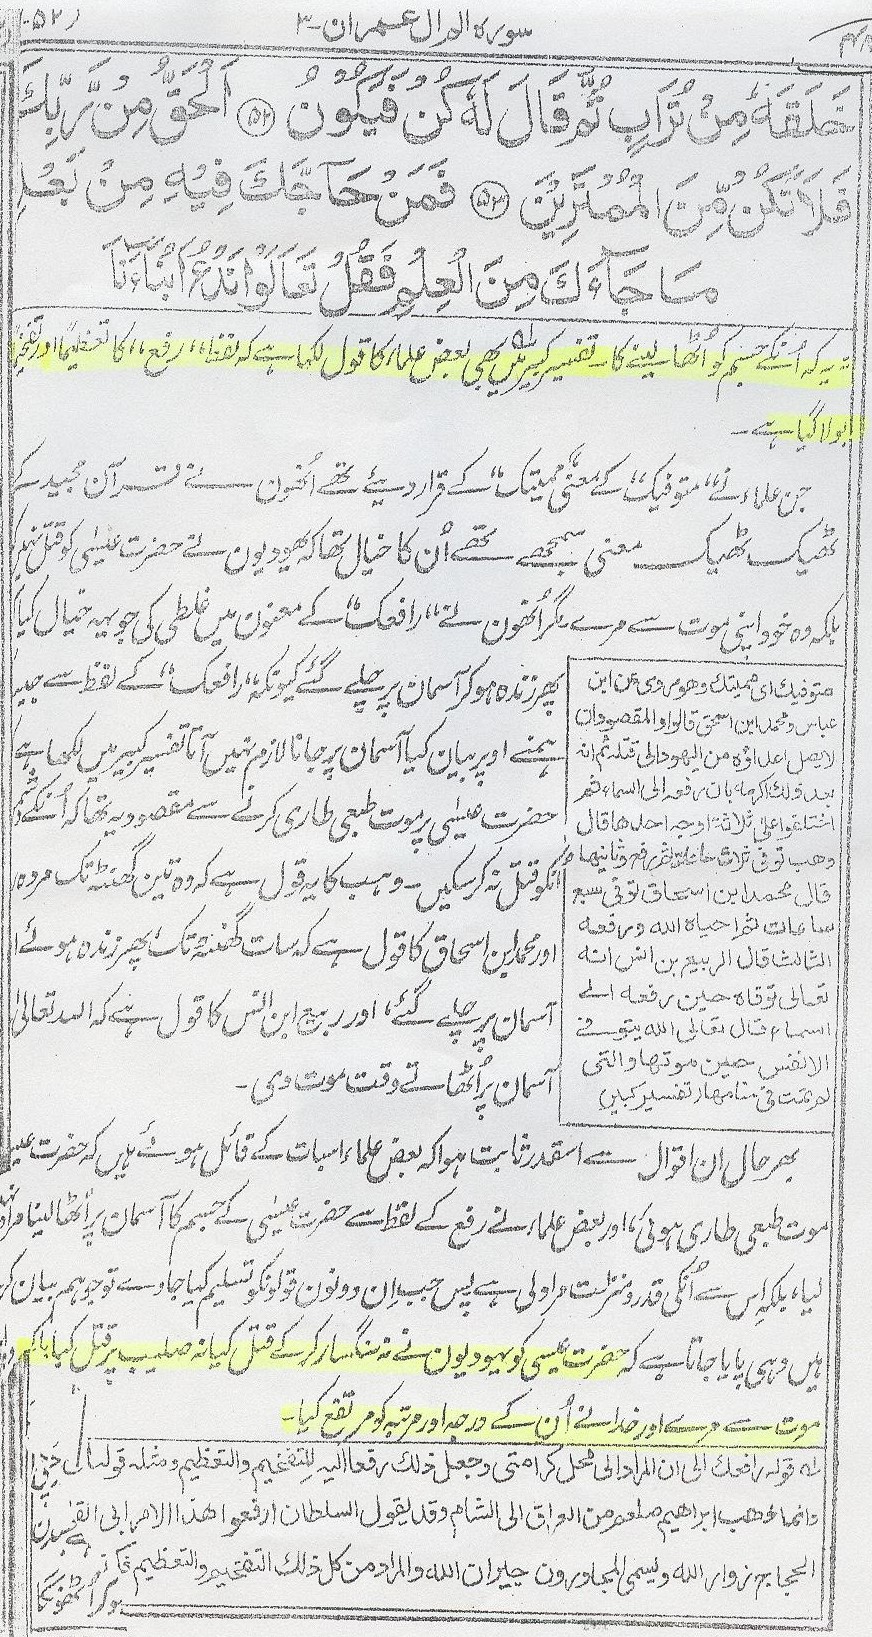 سورہ ال عمران - ۳
خَلَقَهٗ مِنْ تُرَابٍ ثُمَّ قَالَ لَهٗ كُنْ فَيَكُوْنُ ۵۲ اَلْحَقُّ مِنْ رَّبِّكَ
فَلَا تَكُنْ مِّنَ الْمُمْتَرِيْنَ ۵۳ فَمَنْ حَآجَّكَ فِيْهِ مِنْ بَعْدِ
مَا جَآءَكَ مِنَ الْعِلْمِ فَقُلْ تَعَالَوْا نَدْعُ اَبْنَآءَنَا
نہ یہ کہ اُنکے جسم کو اُٹھا لینے کا۔ تفسیر کبیر میں بھی بعض علماء کا قول لکھا ہے کہ لفظ "رفع" کا تعظیماً اور تفخیماً
بولا گیا ہے۔
جن علماء نے "متوفیک" کے معنی "ممیتک" کے قرار دیئے تھے اُنھون نے قرآن مجید کے
ٹھیک ٹھیک معنی سمجھے تھے اُن کا خیال تھا کہ یہودیون نے حضرت عیسٰی کو قتل نہیں کیا
بلکہ وہ خود اپنی موت سے مرے مگر اُنھون نے "رافعک" کے معنون میں غلطی کی جو یہ خیال کیا
پھر زندہ ہو کر آسمان پر چلے گئے کیونکہ "رافعک" کے لفظ سے جیسا
ہمنے اوپر بیان کیا آسمان پر جانا لازم نہیں آتا تفسیر کبیر میں لکھا ہے
حضرت عیسٰی پر موت طبعی طاری کرنے سے مقصود یہ تھا کہ اُنکے دشمن
اُنکو قتل نہ کر سکیں۔ وہب کا یہ قول ہے کہ وہ تین گھنٹہ تک مردہ
اور محمد ابن اسحاق کا قول ہے کہ سات گھنٹہ تک پھر زندہ ہوئے
آسمان پر چلے گئے، اور ربیع ابن انس کا قول ہے کہ اللہ تعالٰی
آسمان پر اُٹھاتے وقت موت دی۔
متوفیك ای ممیتك وهو مروی عن ابن
عباس ومحمد ابن اسحق قالوا والمقصود ان
لا یصل اعداؤه من الیهود الی قتله ثم انه
بعد ذلك اكرمه بان رفعه الی السماء ثم
اختلفوا علی ثلاثة اوجه احدها قال
وهب توفی ثلاث ساعات ثم رفع وثانیها
قال محمد ابن اسحاق توفی سبع
ساعات ثم احیاه الله ورفعه
الثالث قال الربیع بن انس انه
تعالی توفاه حین رفعه الی
السماء قال تعالی الله یتوفی
الانفس حین موتها والتی
لم تمت فی منامها۔ تفسیر کبیر
بہر حال ان اقوال سے اسقدر ثابت ہوا کہ بعض علماء اسبات کے قائل ہوئے ہیں کہ حضرت عیسٰی
موت طبعی طاری ہوئی، اور بعض علماء نے رفع کے لفظ سے حضرت عیسٰی کے جسم کا آسمان پر اُٹھا لینا مراد نہیں
لیا، بلکہ اس سے اُنکی قدر و منزلت مراد لی ہے پس جب ان دونون قولونکو تسلیم کیا جاوے تو جو ہم بیان کرتے
ہیں وہی پایا جاتا ہے کہ حضرت عیسٰی کو یہودیون نے نہ سنگسار کر کے قتل کیا نہ صلیب پر قتل کیا بلکہ
موت سے مرے اور خدا نے اُن کے درجہ اور مرتبہ کو مرتفع کیا۔
قوله رافعك الی ان المراد الی محل كرامتی وجعل ذلك رفعا الیه للتفخیم والتعظیم ومثله قوله
وانما ذهب ابراهیم صلعم من العراق الی الشام وقد یقول السلطان ارفعوا هذا الامر الی القاضی
الحجاج زوار الله ویسمی المجاورون جیران الله والمراد من كل ذلك التفخیم والتعظیم